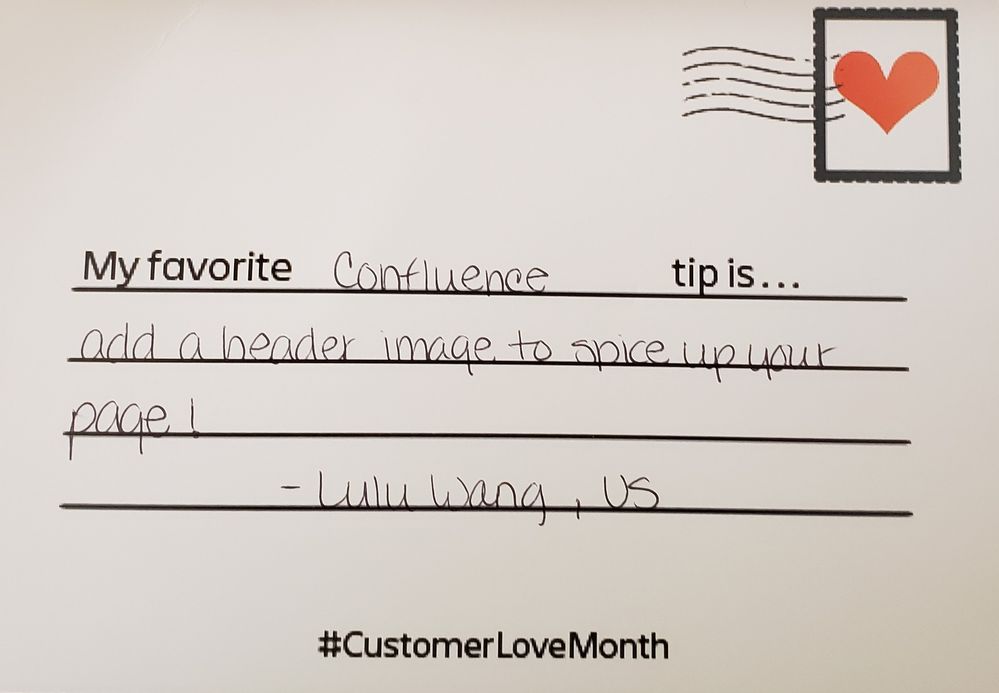 My favorite Confluence tip is...
add a header image to spice up your
page!
- Lulu Wang, US
#CustomerLoveMonth